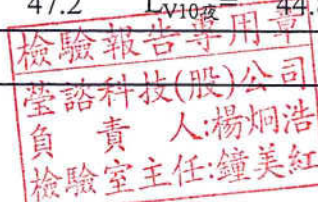 47.2 Lv10夜= 44.
檢驗報告專用章
瑩諮科技(股)公司
負責人:楊炯浩
檢驗室主任:鐘美紅